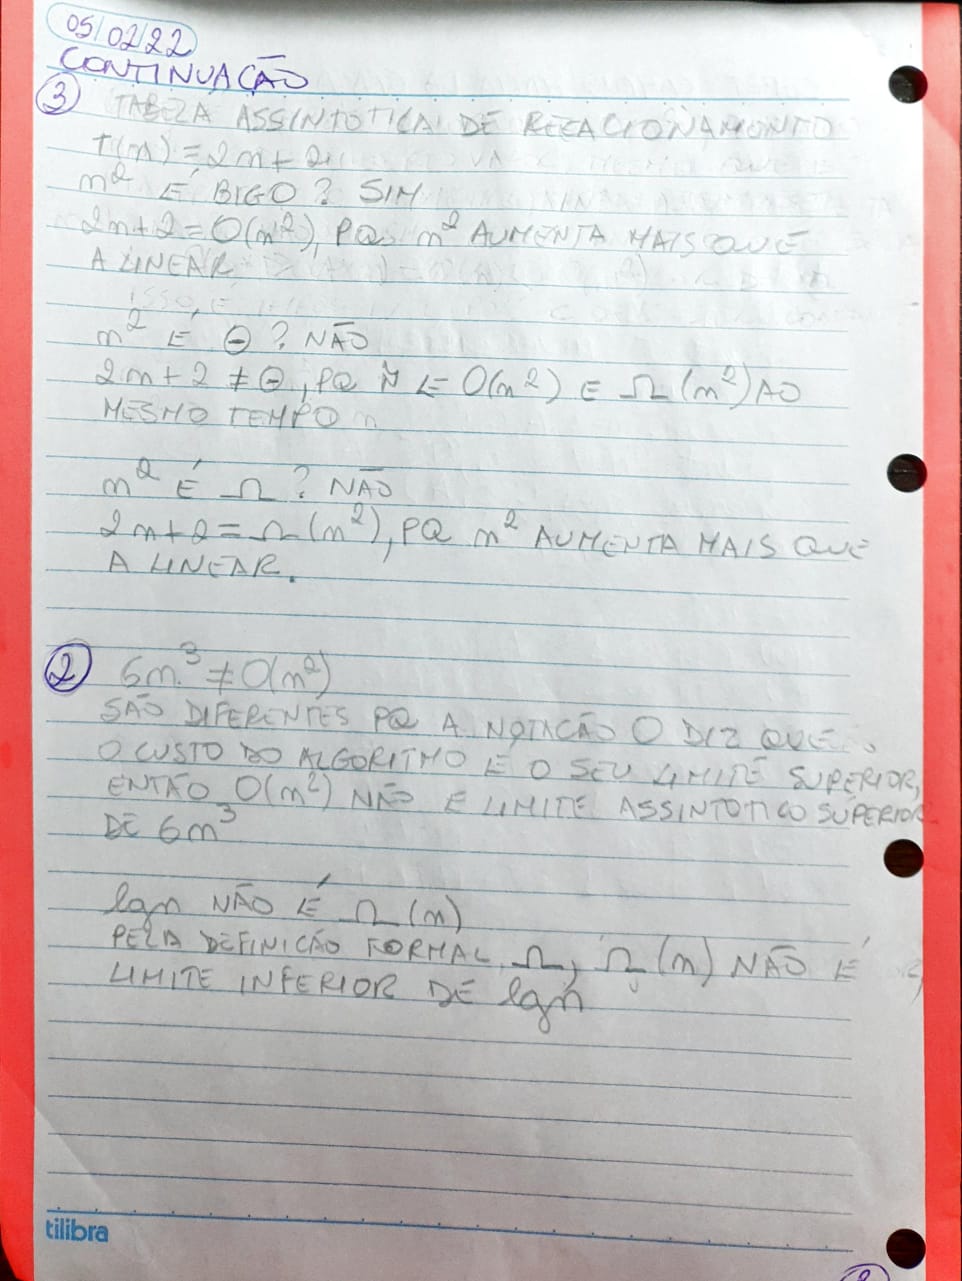 05/02/22
CONTINUAÇÃO
3 TABELA ASSINTOTICA DE RELACIONAMENTO
T(n) = 2n + 2
n² É BIGO? SIM
2n+2 = O(n²), PQ n² AUMENTA MAIS QUE
A LINEAR
n² É Θ? NÃO
2n+2 ≠ Θ, PQ Ñ É O(n²) E Ω(n²) AO
MESMO TEMPO
n² É Ω? NÃO
2n+2 = Ω(n²), PQ n² AUMENTA MAIS QUE
A LINEAR.
2 6n³ ≠ O(n²)
SÃO DIFERENTES PQ A NOTAÇÃO O DIZ QUE
O CUSTO DO ALGORITMO É O SEU LIMITE SUPERIOR,
ENTÃO O(n²) NÃO É LIMITE ASSINTOTICO SUPERIOR
DE 6n³
lgn NÃO É Ω(n)
PELA DEFINIÇÃO FORMAL Ω, Ω(n) NÃO É
LIMITE INFERIOR DE lgn
tilibra